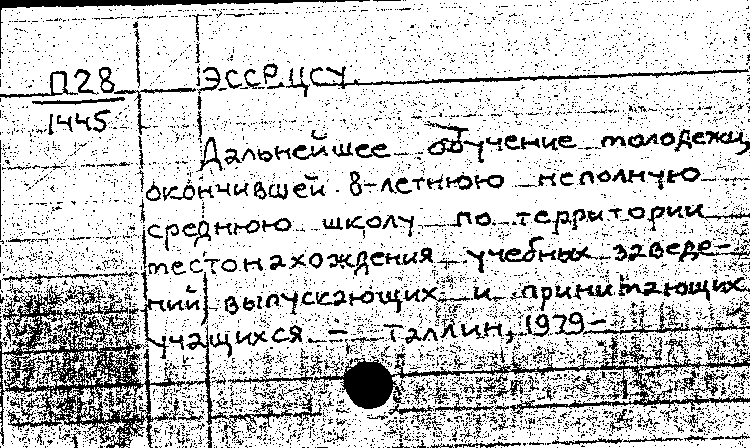 П28
1445
ЭССР. ЦСУ.
Дальнейшее обучение молодежи,
окончившей 8-летнюю неполную
среднюю школу по территории
местонахождения учебных заведе-
ний, выпускающих и принимающих
учащихся. – Таллин, 1979 –